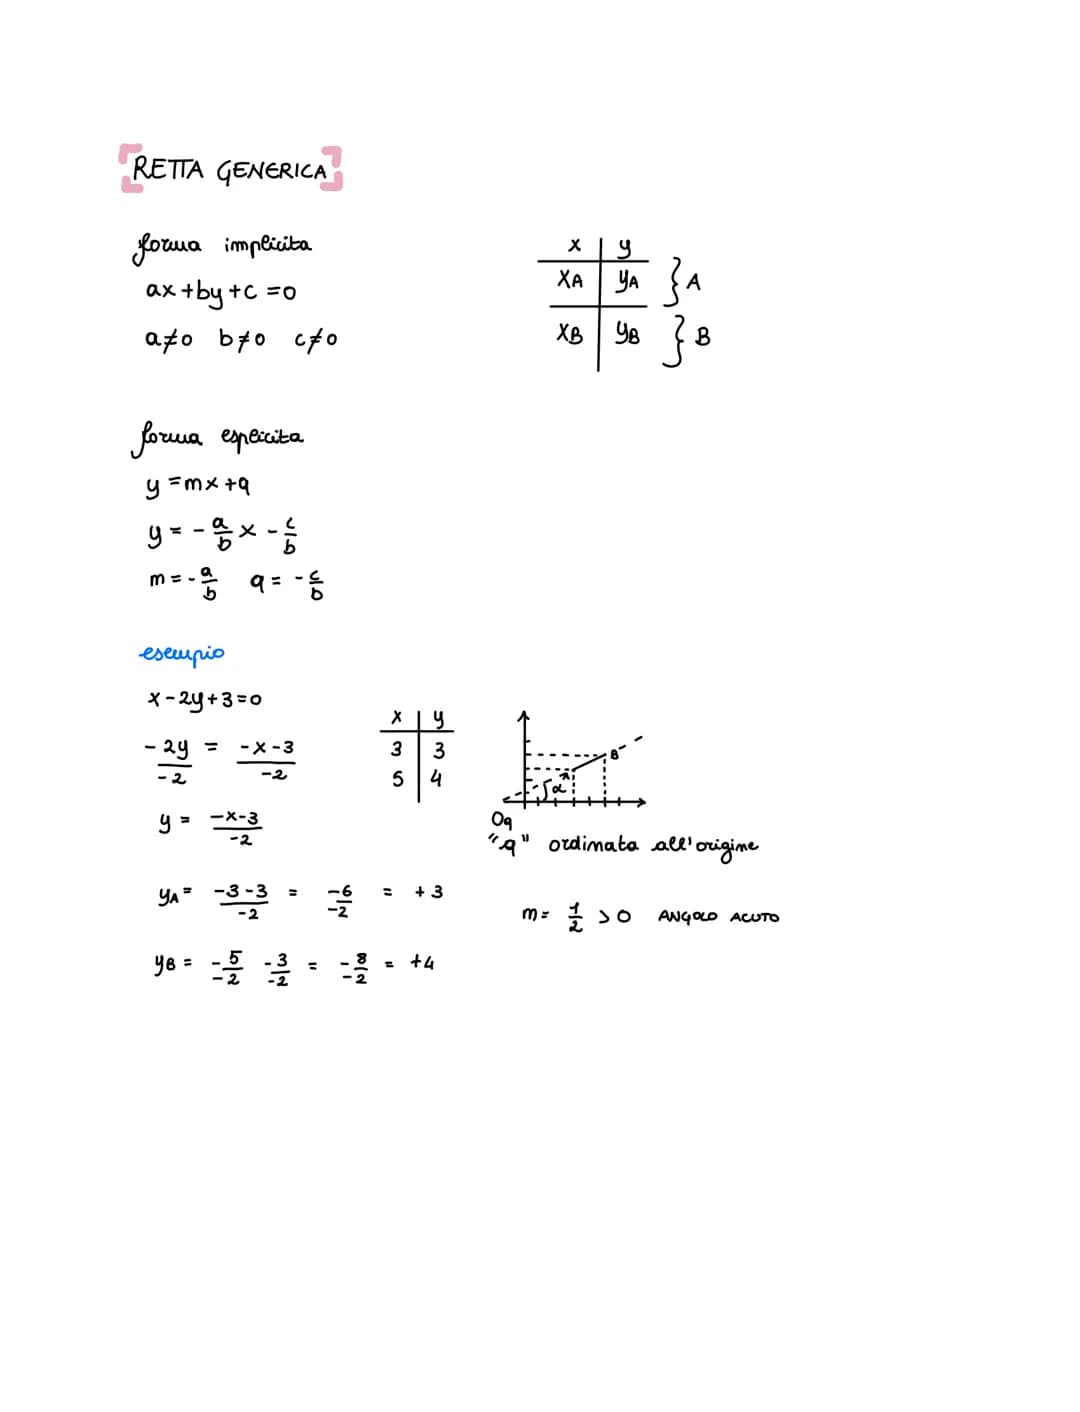 RETTA GENERICA
forma implicita
ax+by+c=0
a≠0 b≠0 c≠0
x | y
xA | yA } A
xB | yB } B
forma esplicita
y=mx+q
y = - a/b x - c/b
m = - a/b q = - c/b
esempio
x-2y+3=0
-2y/-2 = -x-3/-2
y = -x-3/-2
yA = -3-3/-2 = -6/-2 = +3
yB = -5/-2 -3/-2 = -8/-2 = +4
x | y
3 | 3
5 | 4
A B
α
Oq
"q" ordinata all'origine
m = 1/2 >0 ANGOLO ACUTO